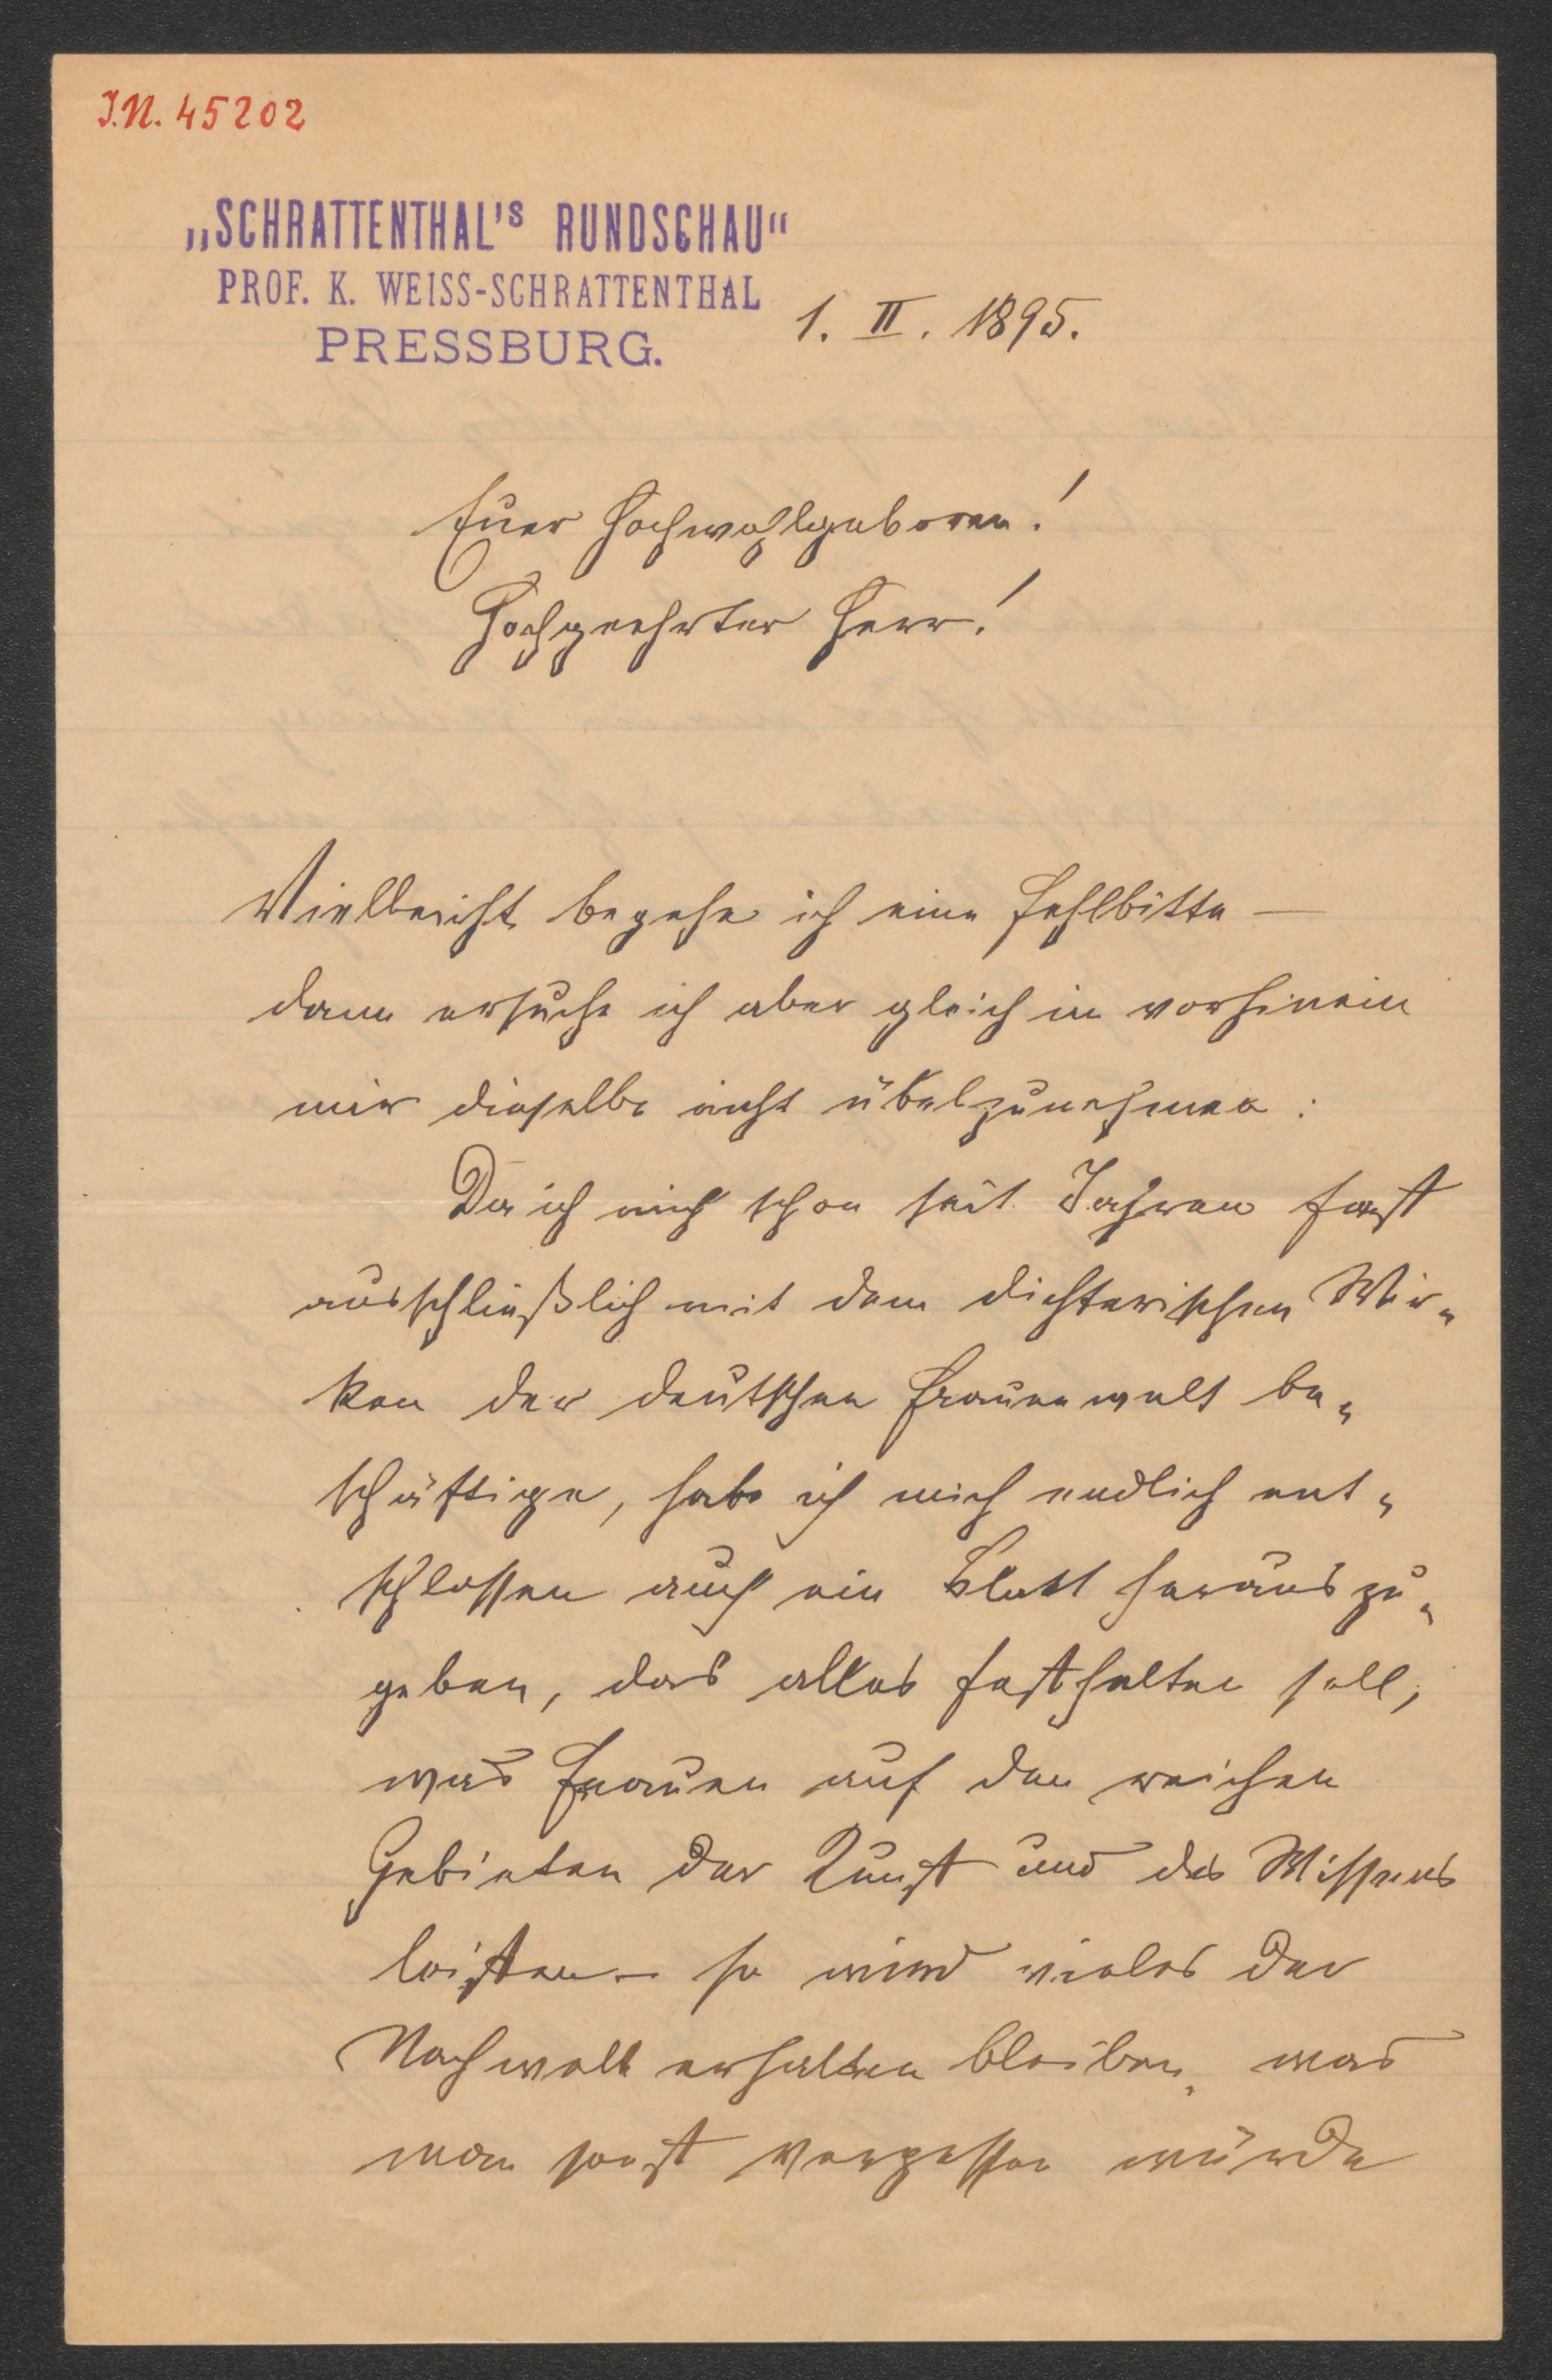 I.N. 45202
„SCHRATTENTHAL'S RUNDSCHAU“
PROF. K. WEISS-SCHRATTENTHAL
PRESSBURG.
1. II. 1895.
Euer Hochwohlgeboren!
Hochgeehrter Herr!
Vielleicht begehe ich eine Fehlbitte —
dann ersuche ich aber gleich im vorhinein
mir dieselbe nicht übelzunehmen:
Da ich mich schon seit Jahren fast
ausschließlich mit dem dichterischen Wir-
ken der deutschen Frauenwelt be-
schäftige, habe ich mich endlich ent-
schlossen auch ein Blatt herauszu-
geben, das alles festhalten soll,
was Frauen auf den reichen
Gebieten der Kunst und des Wissens
leisten — so wird vieles der
Nachwelt erhalten bleiben, was
man sonst vergessen würde